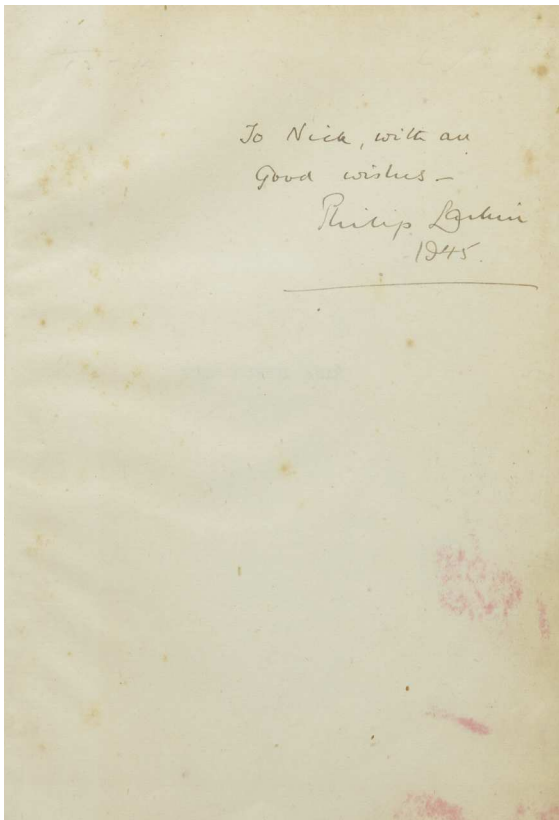 To Nick, with all
Good wishes –
Philip Larkin
1945.